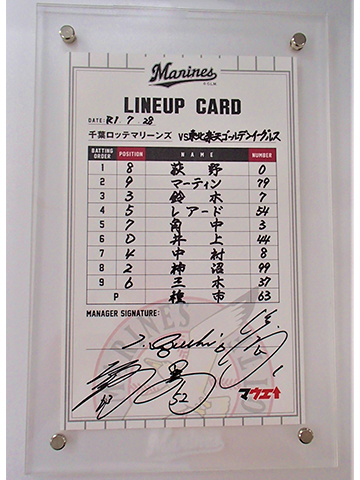 Marines
LINEUP CARD
DATE: R1 7 28
千葉ロッテマリーンズ VS 東北楽天ゴールデンイーグルス
BATTING ORDER POSITION NAME NUMBER
1 8 荻野 0
2 9 マーティン 79
3 3 鈴木 7
4 5 レアード 54
5 7 角中 3
6 D 井上 44
7 4 中村 8
8 2 柿沼 99
9 6 三木 37
P 種市 63
MANAGER SIGNATURE:
52
マウエ↑